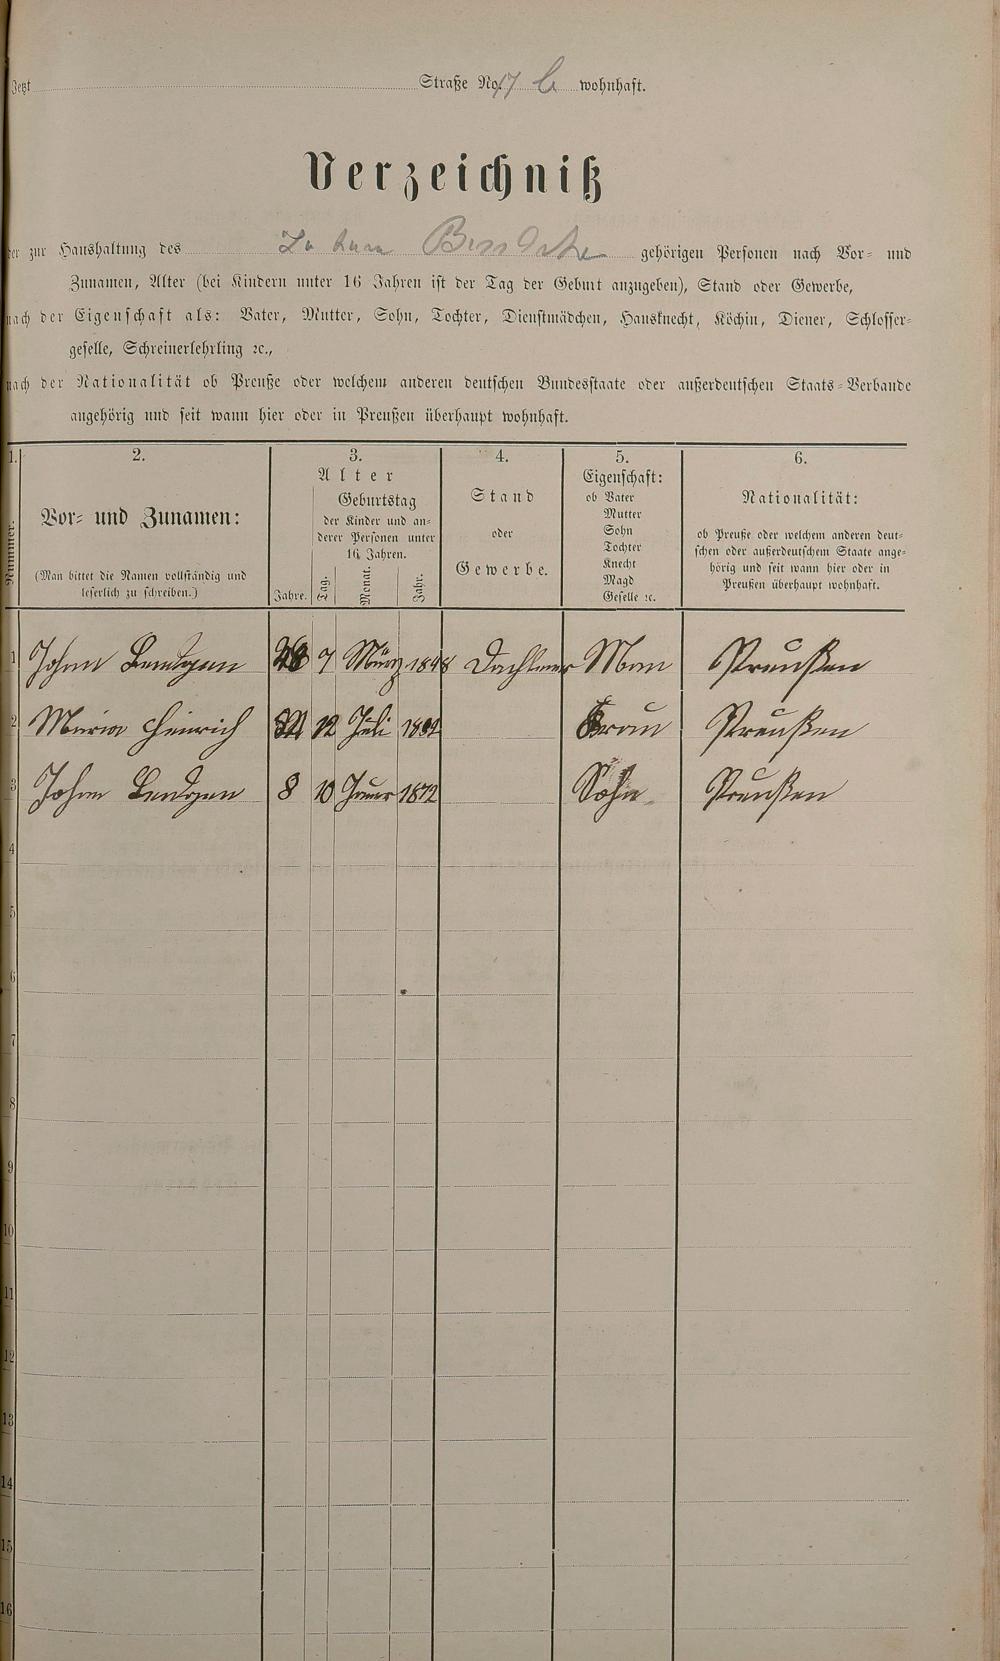 Jetzt Straße No. 17 b wohnhaft.
Verzeichniß
der zur Haushaltung des gehörigen Personen nach Vor- und
Zunamen, Alter (bei Kindern unter 16 Jahren ist der Tag der Geburt anzugeben), Stand oder Gewerbe,
nach der Eigenschaft als: Vater, Mutter, Sohn, Tochter, Dienstmädchen, Hausknecht, Köchin, Diener, Schlosser-
geselle, Schreinerlehrling ꝛc.,
nach der Nationalität ob Preuße oder welchem anderen deutschen Bundesstaate oder außerdeutschen Staats-Verbande
angehörig und seit wann hier oder in Preußen überhaupt wohnhaft.
1. 2. 3. 4. 5. 6.
Nummer.
Vor- und Zunamen:
(Man bittet die Namen vollständig und
leserlich zu schreiben.)
Alter
Jahre.
Geburtstag
der Kinder und an-
derer Personen unter
16 Jahren.
Tag. Monat. Jahr.
Stand
oder
Gewerbe.
Eigenschaft:
ob Vater
Mutter
Sohn
Tochter
Knecht
Magd
Geselle ꝛc.
Nationalität:
ob Preuße oder welchem anderen deut-
schen oder außerdeutschem Staate ange-
hörig und seit wann hier oder in
Preußen überhaupt wohnhaft.
1 Johan 7 März 1848 Man Preußen
2 Maria Heinrich 12 Juli Frau Preußen
3 Johan 8 10 Januar 1872 Sohn Preußen
4
5
6
7
8
9
10
11
12
13
14
15
16